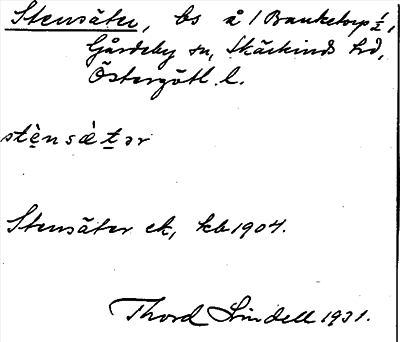 Stensäter, bs å 1 Banketorp ½,
Gårdeby sn, Skärkinds hd,
Östergötl. l.
stènsæ̀tər
Stensäter ek, kb 1904.
Thord Lindell 1931.